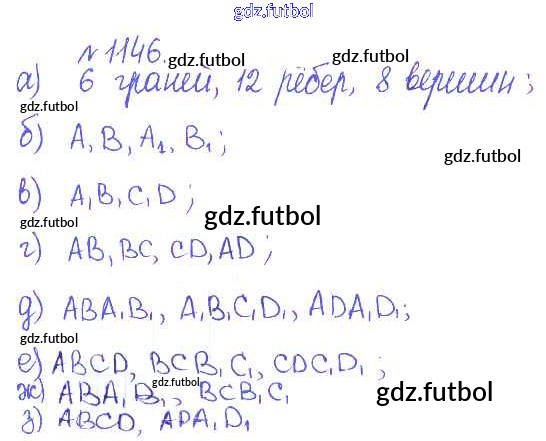 gdz.futbol
№ 1146. gdz.futbol gdz.futbol
а) 6 граней, 12 рёбер, 8 вершин;
gdz.futbol
б) A, B, A₁, B₁;
gdz.futbol
в) A, B, C, D;
gdz.futbol gdz.futbol
г) AB, BC, CD, AD;
gdz.futbol
д) ABA₁B₁, A₁B₁C₁D₁, ADA₁D₁;
gdz.futbol gdz.futbol
е) ABCD, BCB₁C₁, CDC₁D₁;
ж) ABA₁B₁, BCB₁C₁
gdz.futbol gdz.futbol
з) ABCD, ADA₁D₁